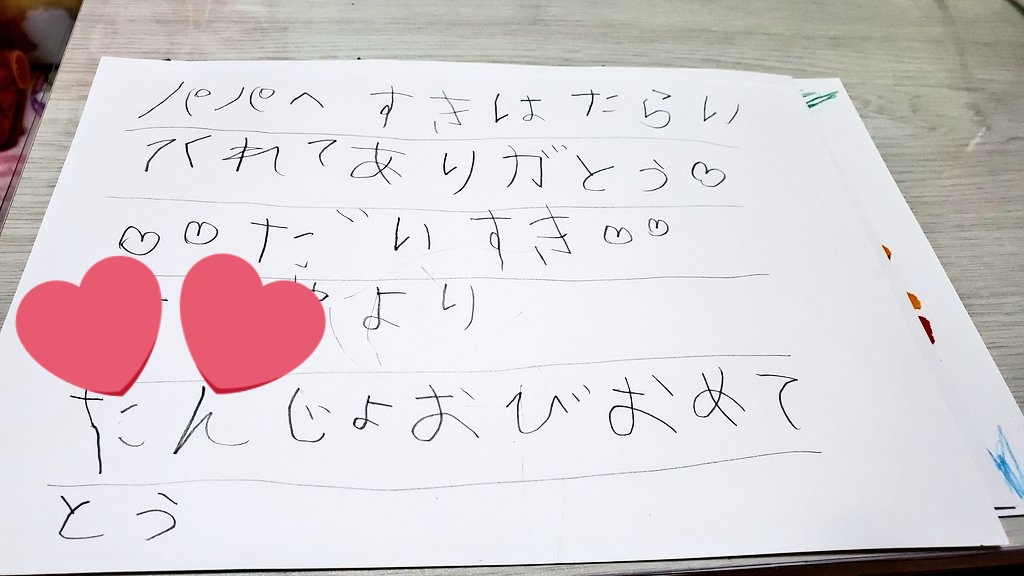 パパへ すきはたらい
てくれてありがとう♡
♡♡だいすき♡♡
より
たんじょおびおめで
とう